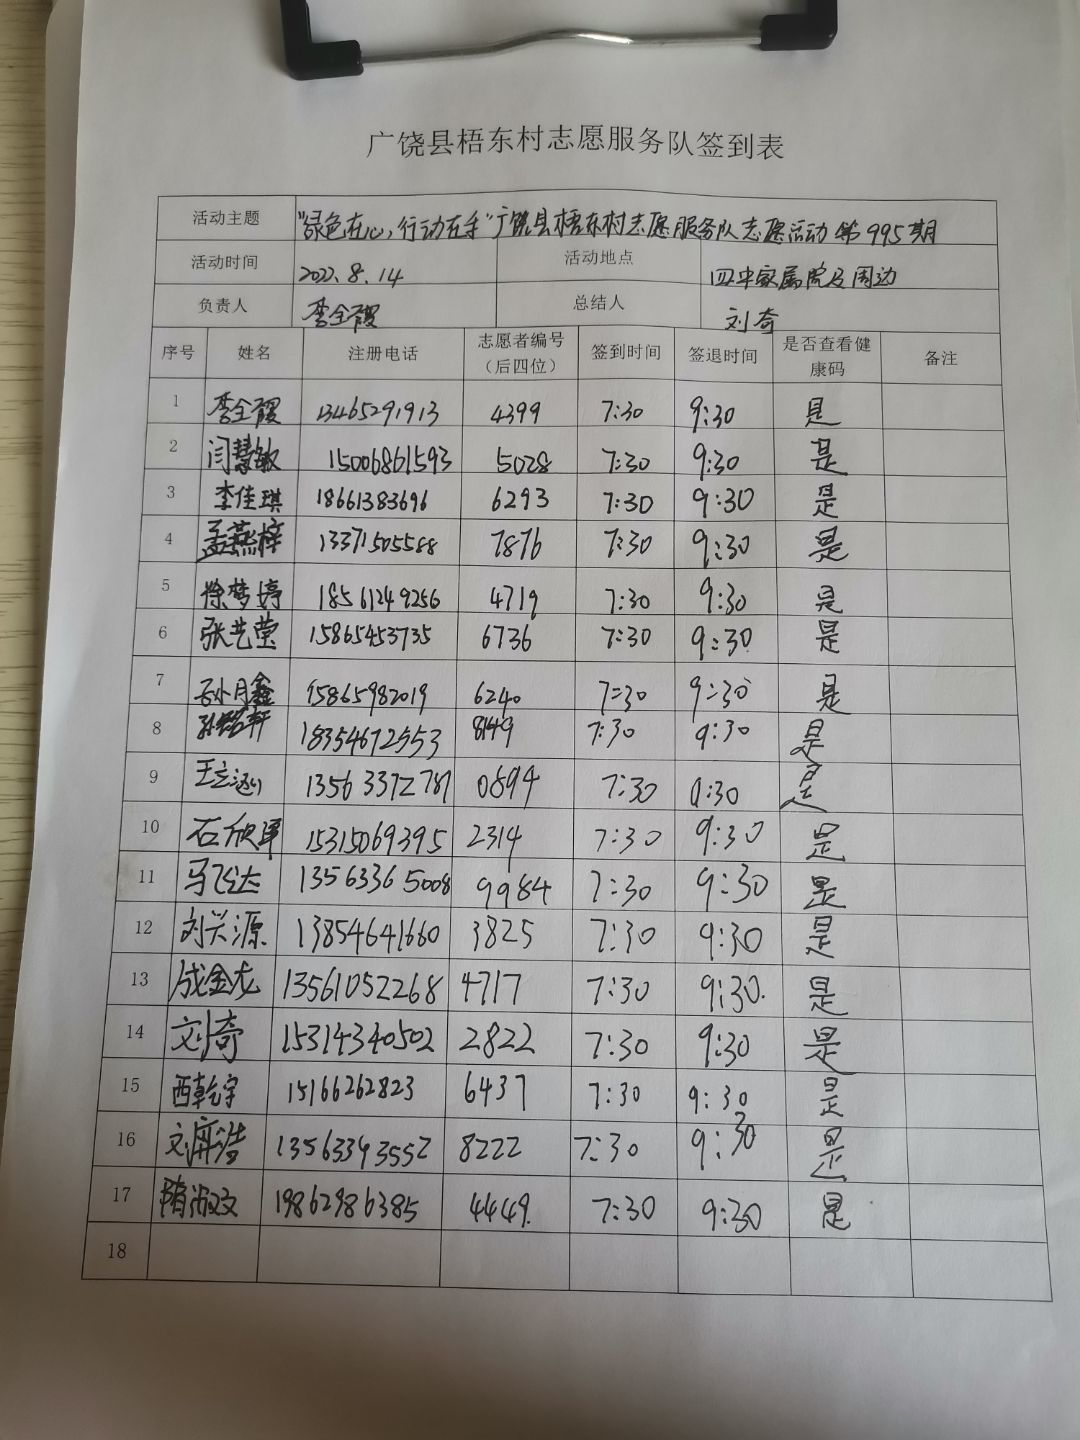 广饶县梧东村志愿服务队签到表
活动主题 "绿色在心,行动在手"广饶县梧东村志愿服务队志愿活动第995期
活动时间 2022.8.14 活动地点 四中家属院及周边
负责人 李全 总结人 刘奇
序号 姓名 注册电话 志愿者编号(后四位) 签到时间 签退时间 是否查看健康码 备注
1 李全 13465291913 4399 7:30 9:30 是
2 闫慧敏 15006861593 5028 7:30 9:30 是
3 李佳琪 18661383696 6293 7:30 9:30 是
4 孟燕梓 13371505588 7876 7:30 9:30 是
5 徐梦婷 18561249256 4719 7:30 9:30 是
6 张艺莹 15865453735 6736 7:30 9:30 是
7 15865982019 6240 7:30 9:30 是
8 18354672553 8149 7:30 9:30 是
9 王立 13563372781 0894 7:30 9:30 是
10 石欣 15315069395 2314 7:30 9:30 是
11 马飞达 13563365008 9984 7:30 9:30 是
12 刘兴源 13854641660 3825 7:30 9:30 是
13 成金龙 13561052268 4717 7:30 9:30. 是
14 刘奇 15314340502 2822 7:30 9:30 是
15 西乾宇 15166262823 6437 7:30 9:30 是
16 刘浩 13563343552 8222 7:30 9:30 是
17 隋淑文 19862986385 4449. 7:30 9:30 是
18